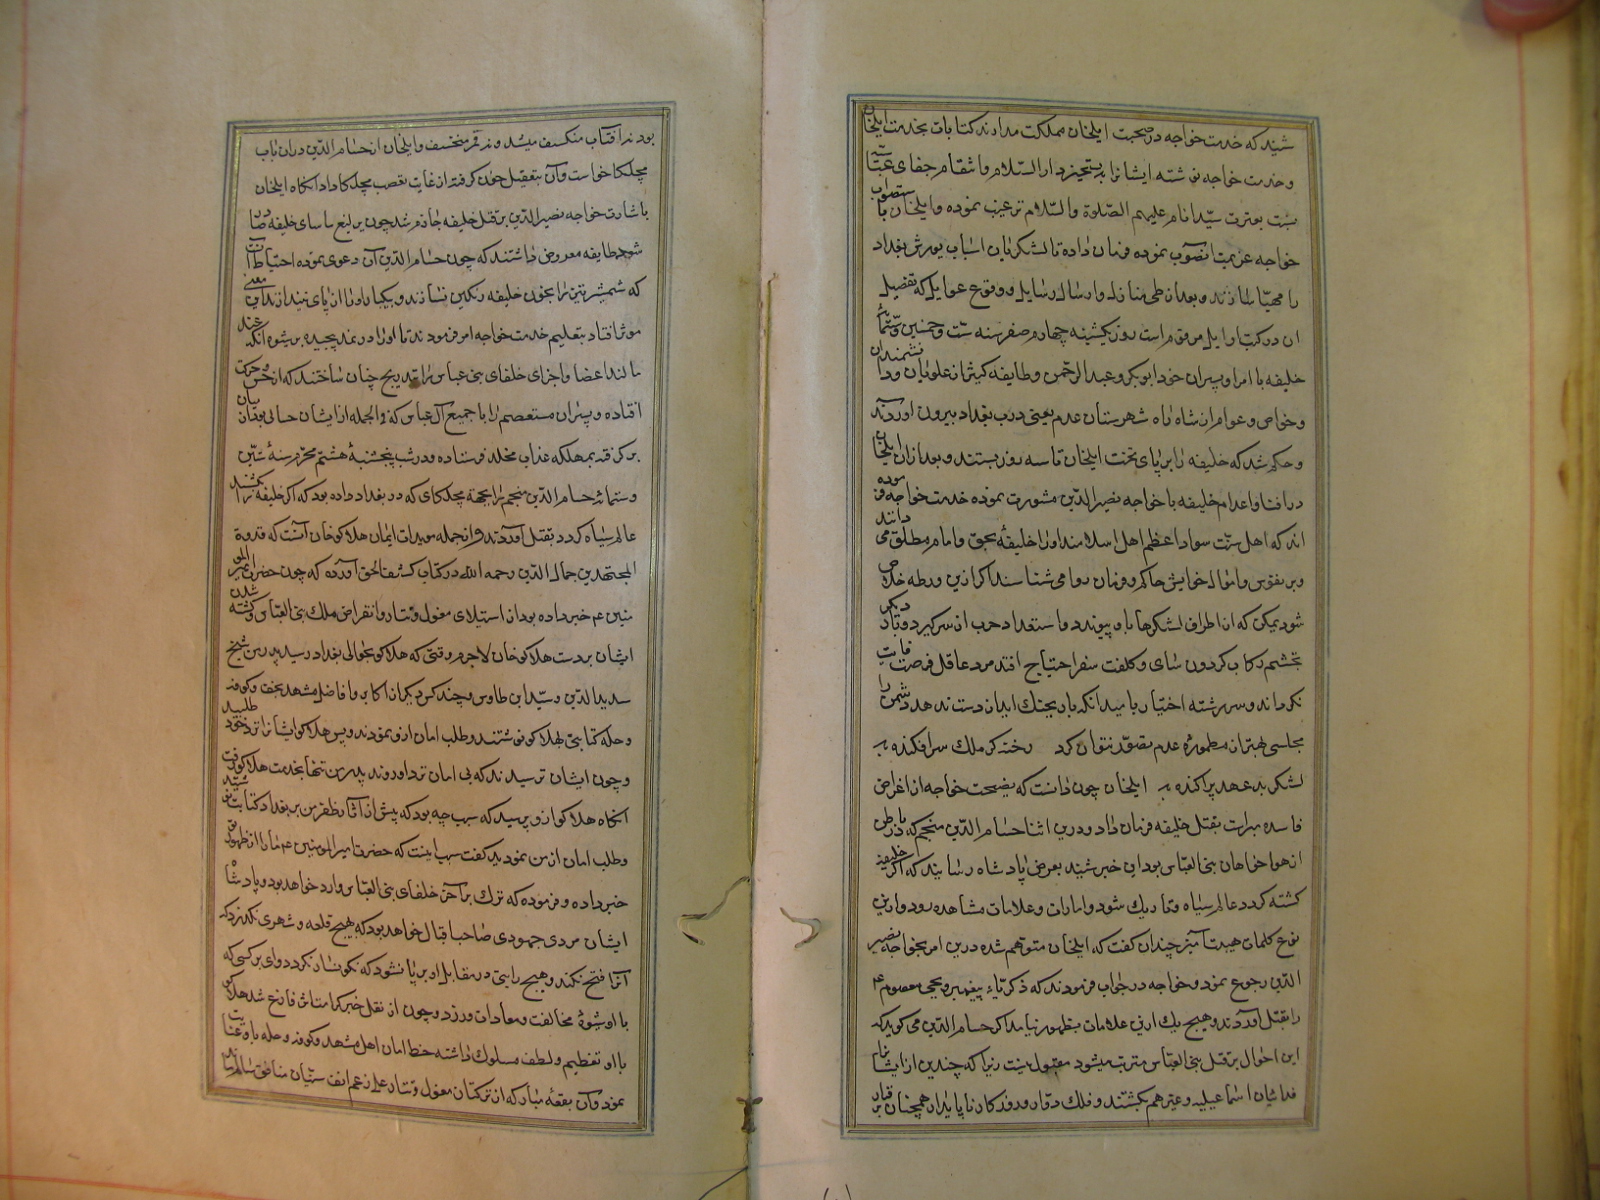 شنید که خدمت خواجه در صحبت ایلخان مملکت مدارند کتابات بخدمت ایلخان
و خدمت خواجه نوشته ایشانرا بتسخیر دار السلام و انتقام جفای عباسیه
نسبت بعترت سید انام علیهم الصلوة والسلام ترغیب نموده و ایلخان با ستصواب
خواجه عزیمت تصویب نموده فرمان داده تا لشکریان اسباب یورش بغداد
را مهیا سازند و بعد از طی منازل و ارسال رسایل و وقوع عوایل که تفصیل
ان در کتب اوایل مرقوم است روز یکشنبه چهارم صفر سنه ست و خمسین و ستمائه
خلیفه با امرا و پسران خود ابوبکر و عبد الرحمن و طایفه کثیر از علویان و دانشمندان
و خواص و عوام از شاه راه شهرستان عدم یعنی درب بغداد بیرون اوردند
و حکم شد که خلیفه را بر پای تخت ایلخان تا سه روز بستند و بعد از ان ایلخان
در افنا و اعدام خلیفه با خواجه نصیر الدین مشورت نموده خدمت خواجه فرموده
اند که اهل سنت سواد اعظم اهل اسلامند او را خلیفهٔ بحق و امام مطلق می دانند
و بر نفوس و اموال خوایش حاکم و فرمان روا می شناسند اگر ازین ورطه خلاص
شود یمکن که از اطراف لشکرها باو پیوندد و استعداد حرب از سر گیرد و بار دیگر
تجشم رکاب گردون سای و کلفت سفر احتیاج افتد مرد عاقل فرصت فایت
نگرداند و سر رشته اختیار بامید انکه بار بچنک اید از دست ندهد دشمن را
مجلسی بهتر از مطمورهٔ عدم تصور نتوان کرد وختم کر ملک سر افکنده به
لشکر بد عهد پراکنده به ایلخان چون دانست که نصیحت خواجه از اغراض
فاسده مبراست بقتل خلیفه فرمان داد و درین اثنا حسام الدین منجم که در باطن
از هوا خواهان بنی العباس بود این خبر شنید بعرض پادشاه رسانید که اگر خلیفه
کشته کردد عالم سیاه و تاریک شود و امارات و علامات مشاهده رود و ازین
نوع کلمات هیبت آمیز چندان گفت که ایلخان متوهم شده درین امر بخواجه نصیر
الدین رجوع نمود و خواجه در جواب فرمودند که ذکریاء پیغمبر و یحیی معصوم ع م
را بقتل آوردند و هیچ یک از این علامات بظهور نیامد اگر حسام الدین می کوید که
این احوال بر قتل بنی العباس مترتب میشود مقبول نیست زیرا که چندین از ایشانرا
فدائیان اسماعیلیه و غیر هم بکشتند و فلک دوار و روزگار ناپایدار همچنان بر قرار
بودند آفتاب منکسف میشد و نه قمر منخسف و ایلخان از حسام الدین در ان باب
مچلکا خواست و آن بتعقیل جون گرفته از غایت تعصب مچلکا داد انکاه ایلخان
باشارت خواجه نصیر الدین بر قتل خلیفه جازم شد چون یرلیغ باسای خلیفه صادر
شود طایفه معروض داشتند که چون حسام الدین آن دعوی نموده احتیاط آنست
که شمشیر تیز را بخون خلیفه رنگین نسازند و یکباره او را از پای نیندازند این معنی
موثر افتاد بتعلیم خدمت خواجه امر فرمودند تا او را در نمد پیچیده بر شیوه آنکه خند
مالند اعضا و اجزای خلفای بنی عباس را بتدریج چنان ساختند که از حس و حرکت
افتاده و پسران مستعصم را با جمیع آل عباس که فی الجمله از ایشان حسابی بود از میان
بر گرفته بمهلکه عذاب مخلد فرستاده و در شب پنجشنبهٔ هشتم محرم سنهٔ ستین
و ستمائه حسام الدین منجم را بجهة مچلکای که در بغداد داده بود که اگر خلیفه را بکشند
عالم سیاه گردد بقتل آوردند و از جمله مویدات ایمان هلاکو خان آنست که قدوة
المجتهدین جمال الدین رحمه الله در کتاب کشف الحق آورده که چون حضرت امیر المو
منین ع م خبر داده بود از استیلای مغول و تتار و انقراض ملک بنی العباس و کشته شدن
ایشان بر دست هلاکو خان لاجرم وقتی که هلاکو بحوالی بغداد رسید پدر من شیخ
سدید الدین و سید ابن طاوس و چند کس دیگر از اکابر و افاضل مشهد نجف و کوفه
و حله کتابتی بهلاکو نوشتند و طلب امان ازو نمودند و پس هلاکو ایشانرا نزد خود طلبید
و چون ایشان ترسیدند که بی امان نزد او روند پدر من تنها بخدمت هلاکو رفت
انگاه هلاکو ازو پرسید که سبب چه بود که پیش از آثار ظفر من بر بغداد کتابت نوشتید
و طلب امان از من نمودید گفت سبب اینست که حضرت امیر المومنین ع م مارا از ظهور تو
خبر داده و فرموده که ترک بر آخر خلفای بنی العباس وارد خواهد بود و پادشاه
ایشان مردی جهودی صاحب اقبال خواهد بود که بهیچ قلعه و شهری نگذرد که
آنرا فتح نکند و هیچ رایتی در مقابل او بر پا نشود که نگونسار نگردد وای بر کسی که
با او شیوهٔ مخالفت و معادات ورزد و چون از نقل خبر کرامت اثر فارغ شد هلاکو
با او تعظیم و لطف مسلوک داشته خط امان اهل مشهد و کوفه و حله باو عنایت
نمود و آن بقعهٔ مبارکه از ترکتان مغول و تتار علی رغم انف سنیان منافق سالم ماند